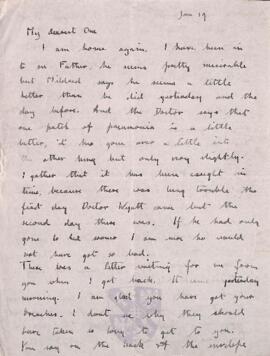 Jan 19
My dearest One
I am home again. I have been in
to see Father, he seems pretty miserable
but Mildred says he seems a little
better than he did yesterday and the
day before. And the Doctor says that
one patch of pneumonia is a little
better, it has gone over a little into
the other lung but only very slightly.
I gather that it has been caught in
time, because there was lung trouble the
first day Doctor came but the
second day there was. If he had only
gone to bed sooner I am sure he would
not have got so bad.
There was a letter waiting for me from
you when I got back. It came yesterday
morning. I am glad you have got your
breeches. I don't see why they should
have taken so long to get to you.
You say on the back of the envelope